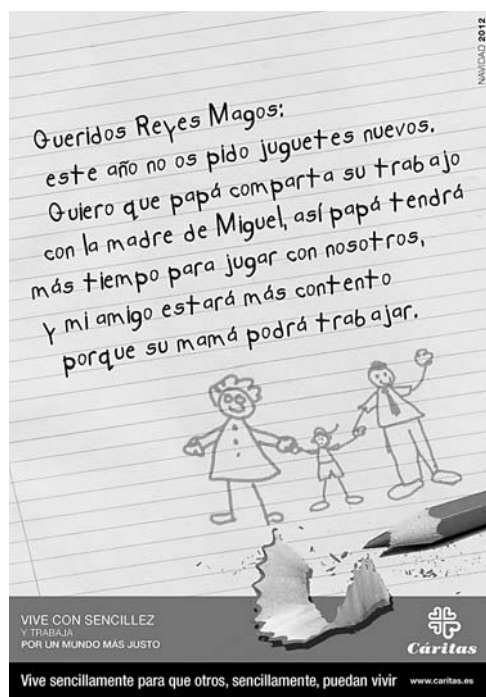 NAVIDAD 2012
Queridos Reyes Magos:
este año no os pido juguetes nuevos.
Quiero que papá comparta su trabajo
con la madre de Miguel, así papá tendrá
más tiempo para jugar con nosotros,
Y mi amigo estará más contento
porque su mamá podrá trabajar.
VIVE CON SENCILLEZ
Y TRABAJA
POR UN MUNDO MÁS JUSTO
Cáritas
Vive sencillamente para que otros, sencillamente, puedan vivir www.caritas.es